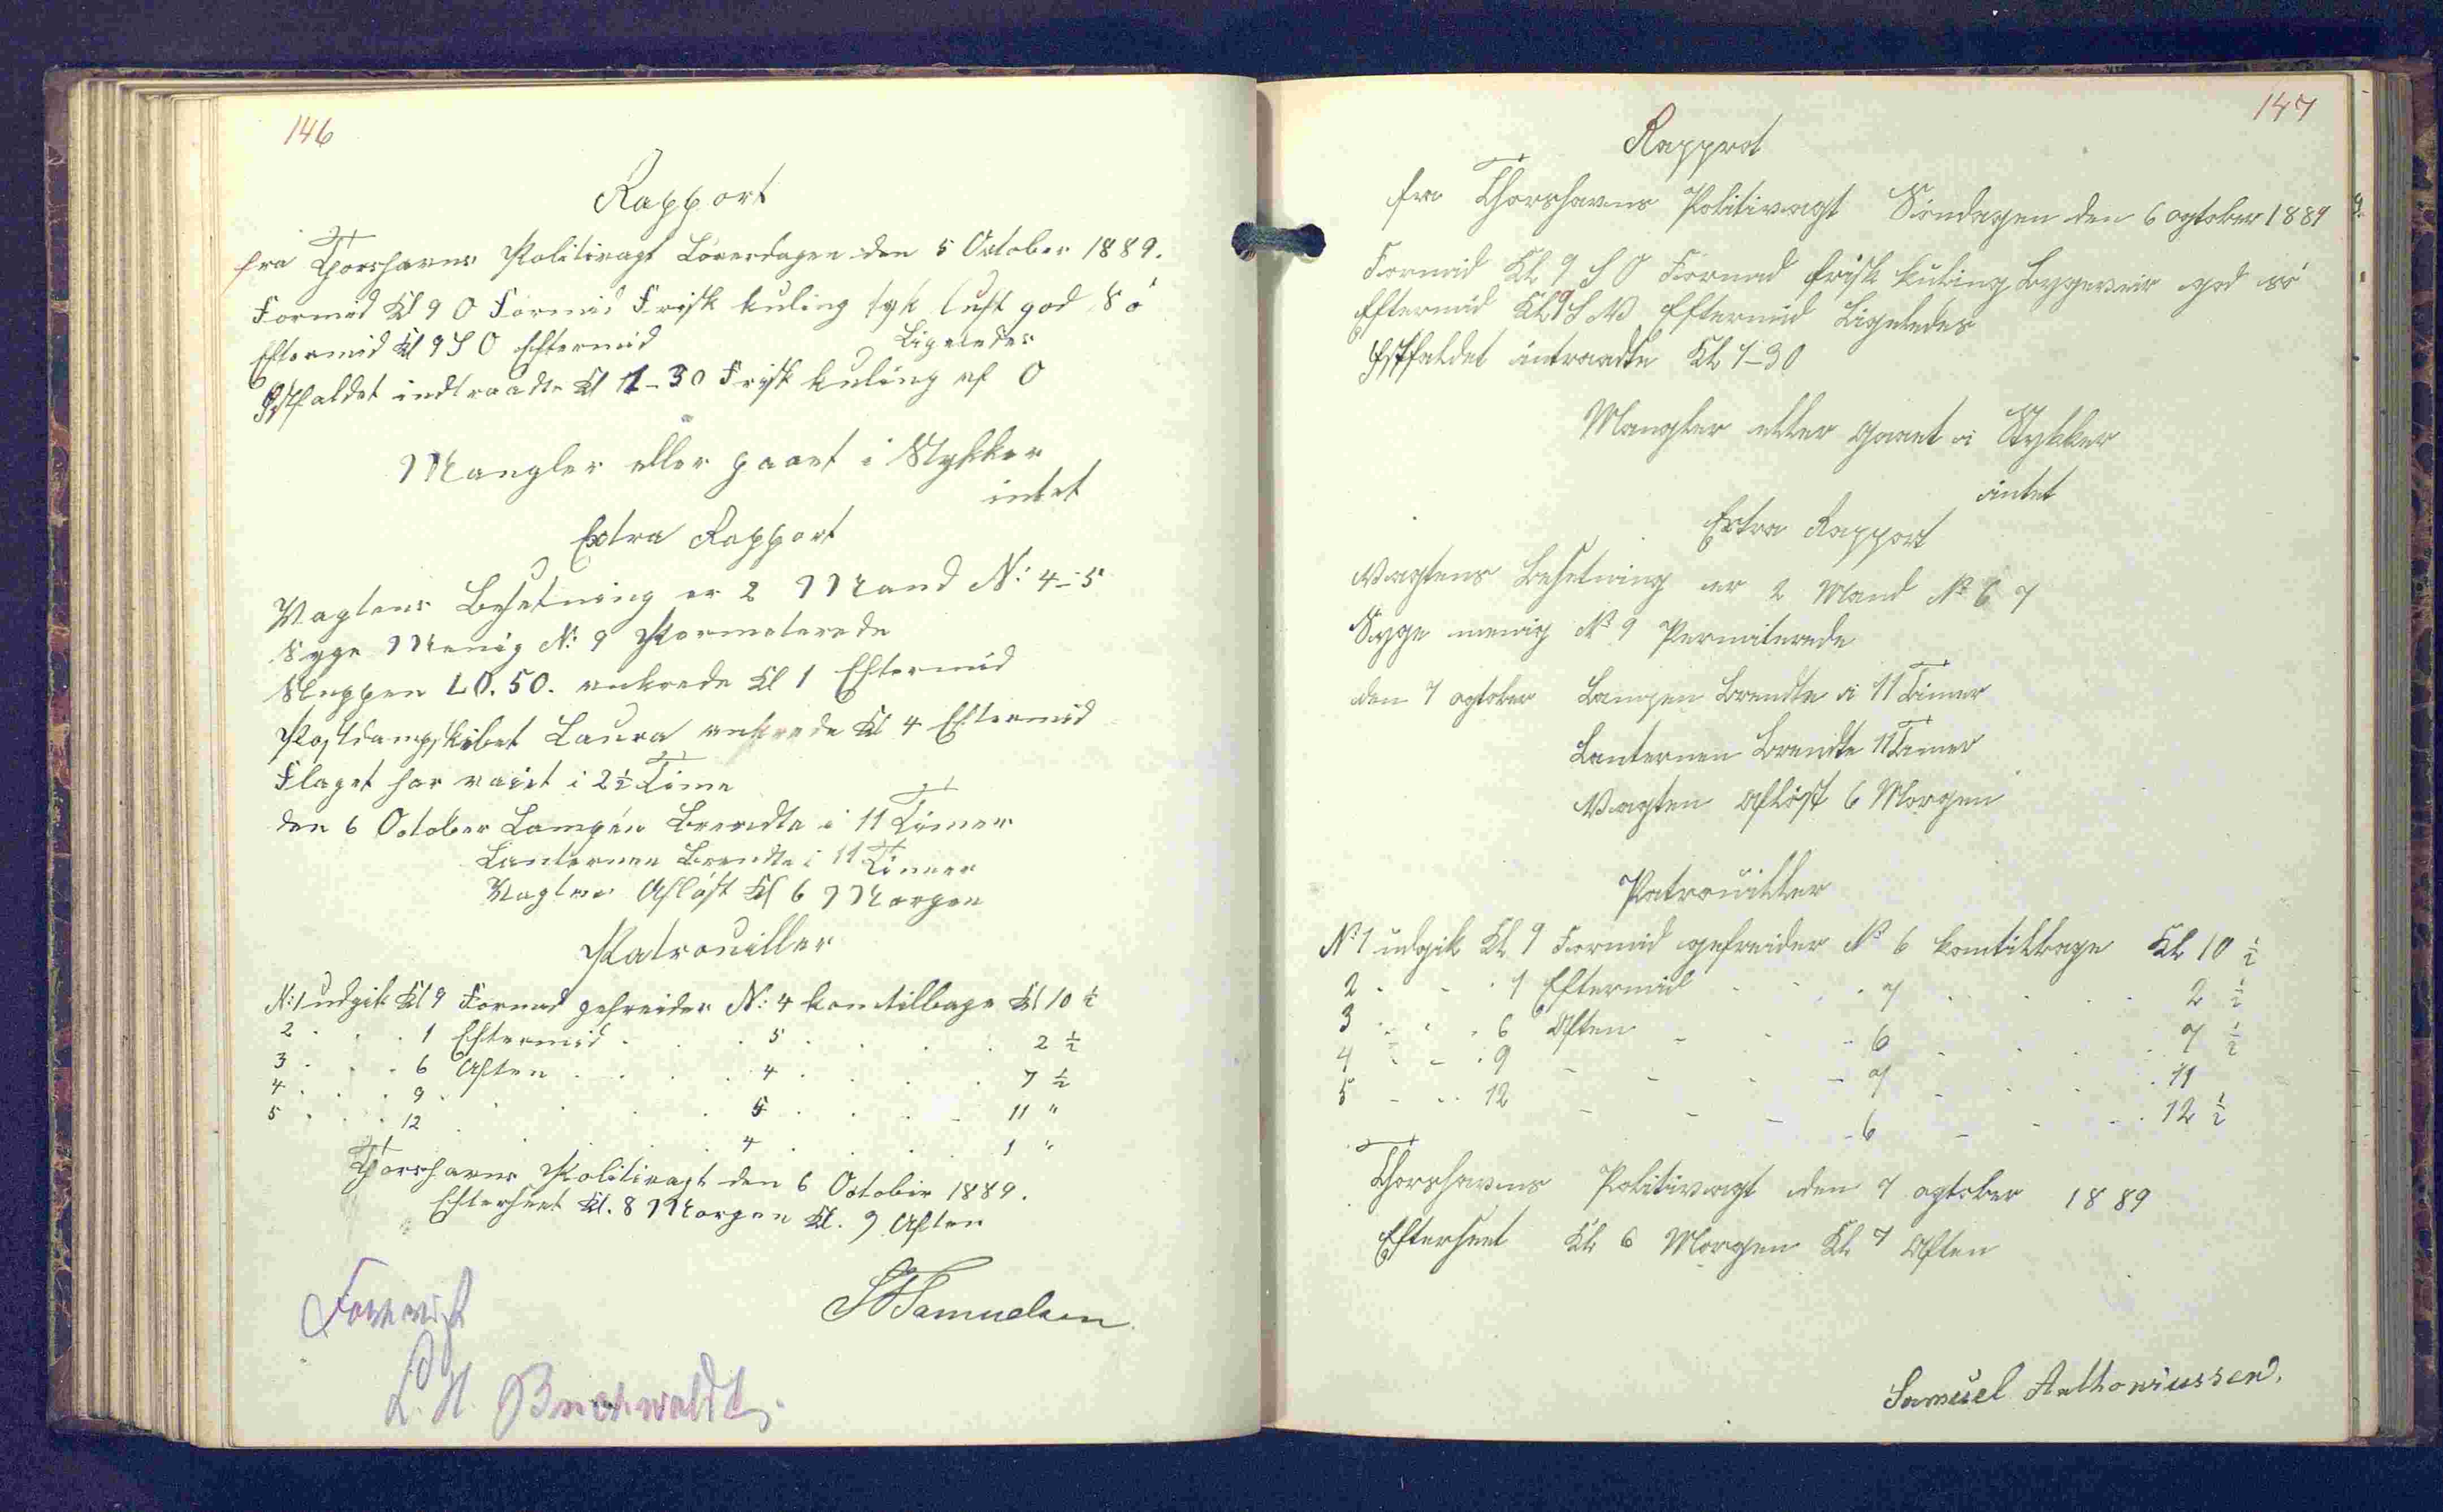 146
Rapport
fra Thorshavns Politivagt Løverdagen den 5 October 1889.
Formid Kl 9 O Formid Frisk kuling tyk luft god Sø
Eftermid Kl 9 S O Eftermid Ligeledes
Østfaldet indtraadte Kl 11-30 Frisk kuling af O
Mangler eller gaaet i Stykker
intet
Extra Rapport
Vagtens Besetning er 2 Mand N: 4-5
Syge Menig N: 9 Permeterede
Sluppen L.O. 50. ankrede Kl 1 Eftermid
Postdampskibet Laura ankrede Kl 4 Eftermid
Flaget har vaiet i 2½ Time
den 6 October Lampen Brendte i 11 Timer
Lanternen Brendte i 11 Timer
Vagten Afløst Kl 6 Morgen
Patrouiller
N: 1 udgik Kl 9 Formid gefreider N: 4 kom tilbage Kl 10 ½
2 . . . 1 Eftermid . . . 5 . . . . 2 ½
3 . . . 6 Aften . . . . 4 . . . . 7 ½
4 . . . 9 . . . . . 5 . . . . 11 "
5 . . . 12 . . . . . 4 . . . . 1 "
Thorshavns Politivagt den 6 October 1889.
Efterseet Kl. 8 Morgen Kl. 9 Aften
Samuelsen
Forevist
L. H. Buchwaldt
147
Rapprot
fra Thorshavns Politivagt Søndagen den 6 ogtober 1889
Formid Kl 9 S O Formid frisk kuling Bygeveir god sø
Eftermid Kl 9 S W Eftermid Ligeledes
Østfaldet intraadte Kl 1-30
Mangler eller gaaet i Stykker
intet
Extra Rapport
Vagtens Besetning er 2 Mand No 6 7
Syge menig No 9 Permiterede
den 7 ogtober Lampen Brendte i 11 Timer
Lanternen Brendte 11 Timer
Vagten Afløst 6 Morgen
Patrouiller
No 1 udgik Kl 9 Formid gefreider No 6 kom tilbage Kl 10 ½
2 . . . 1 Eftermid . . . 7 . . . . 2 ½
3 . . . 6 Aften - - - 6 . . . . 7 ½
4 - - . 9 - - - 7 - . . . 11
5 - . . 12 - - - 6 - - - . 12 ½
Thorshavns Politivagt den 7 ogtober 1889
Efterseet Kl 6 Morgen Kl 7 Aften
Samuel Anthoniussen.